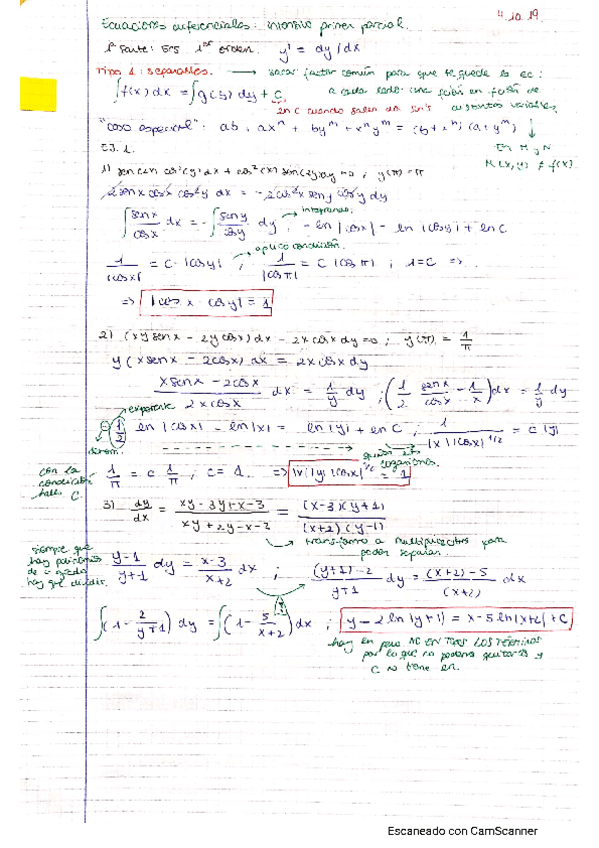 4.10.19
Ecuaciones diferenciales: intensivo primer parcial.
1ª Parte: EDs 1er orden. y' = dy/dx
Tipo 1: separables. → sacar factor común para que te quede la ec:
∫f(x) dx = ∫g(y) dy + C a cada lado una función en función de
ln C cuando salen ln sin's distintas variables
"caso especial": ab + ax^n + by^m + x^n y^m = (b+x^n)(a+y^m)
EJ. 1. En M y N
M(x,y) ≠ f(x)
1) sen x cos²(y) dx + cos²(x) sen(2y) dy = 0 ; y(π) = π
2 sen x cos x cos²y dx = -2 cos²x sen y cos y dy
∫ sen x / cos x dx = -∫ sen y / cos y dy → integramos: -ln |cos x| = ln |cos y| + ln C
→ aplico condición.
1/|cos x| = C · |cos y| ; 1/|cos π| = C |cos π| ; 1 = C =>
=> |cos x · cos y| = 1
2) (xy sen x - 2y cos x) dx - 2x cos x dy = 0 ; y(π) = 1/π
y (x sen x - 2 cos x) dx = 2x cos x dy
(x sen x - 2 cos x) / (2x cos x) dx = 1/y dy ; (1/2 sen x / cos x - 1/x) dx = 1/y dy
exponente
-1/2 ln |cos x| - ln |x| = ln |y| + ln C ; 1 / (|x| |cos x|^1/2) = C |y|
denom.
con la condición hallo C. 1/π = C 1/π ; C = 1. => |x| |y| |cos x|^1/2 = 1
3) dy/dx = (xy - 3y + x - 3) / (xy + 2y - x - 2) = (x-3)(y+1) / (x+2)(y-1)
→ transformo a multiplicación para
poder separar.
siempre que
hay polinomios
de = grado
hay que dividir.
(y-1)/(y+1) dy = (x-3)/(x+2) dx ; ((y+1)-2)/(y+1) dy = ((x+2)-5)/(x+2) dx
∫(1 - 2/(y+1)) dy = ∫(1 - 5/(x+2)) dx ; y - 2 ln |y+1| = x - 5 ln |x+2| + C
hay ln pero NO EN TODOS LOS TÉRMINOS
por lo que no podemos quitarlos y
C no tiene ln.
Escaneado con CamScanner